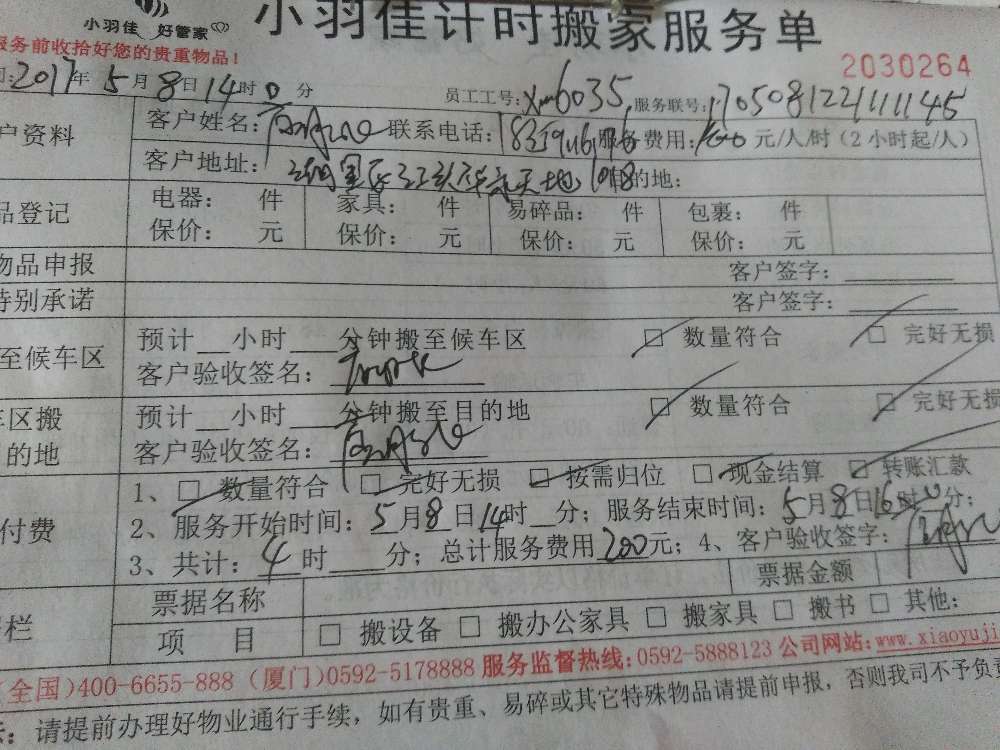 小羽佳 好管家
小羽佳计时搬家服务单
服务前收拾好您的贵重物品！
2030264
间：2017年5月8日14时0分 员工工号：Xm6035 服务联号：17050812211145
户资料 客户姓名： 联系电话： 服务费用： 元/人/时（2小时起/人）
客户地址： 目的地：
品登记 电器： 件 家具： 件 易碎品： 件 包裹： 件
保价： 元 保价： 元 保价： 元 保价： 元
物品申报 客户签字：
特别承诺 客户签字：
至候车区 预计__小时___分钟搬至候车区 □ 数量符合 □ 完好无损
客户验收签名：
车区搬 预计__小时___分钟搬至目的地 □ 数量符合 □ 完好无损
目的地 客户验收签名：
1、□ 数量符合 □ 完好无损 □ 按需归位 □ 现金结算 □ 转账汇款
付费 2、服务开始时间：5月8日14时__分；服务结束时间：5月8日16时0分；
3、共计：4时___分；总计服务费用200元；4、客户验收签字：
栏 票据名称 票据金额
项 目 □ 搬设备 □ 搬办公家具 □ 搬家具 □ 搬书 □ 其他：
(全国)400-6655-888 (厦门)0592-5178888 服务监督热线：0592-5888123 公司网站：www.xiaoyuji
：请提前办理好物业通行手续，如有贵重、易碎或其它特殊物品请提前申报，否则我司不予负责